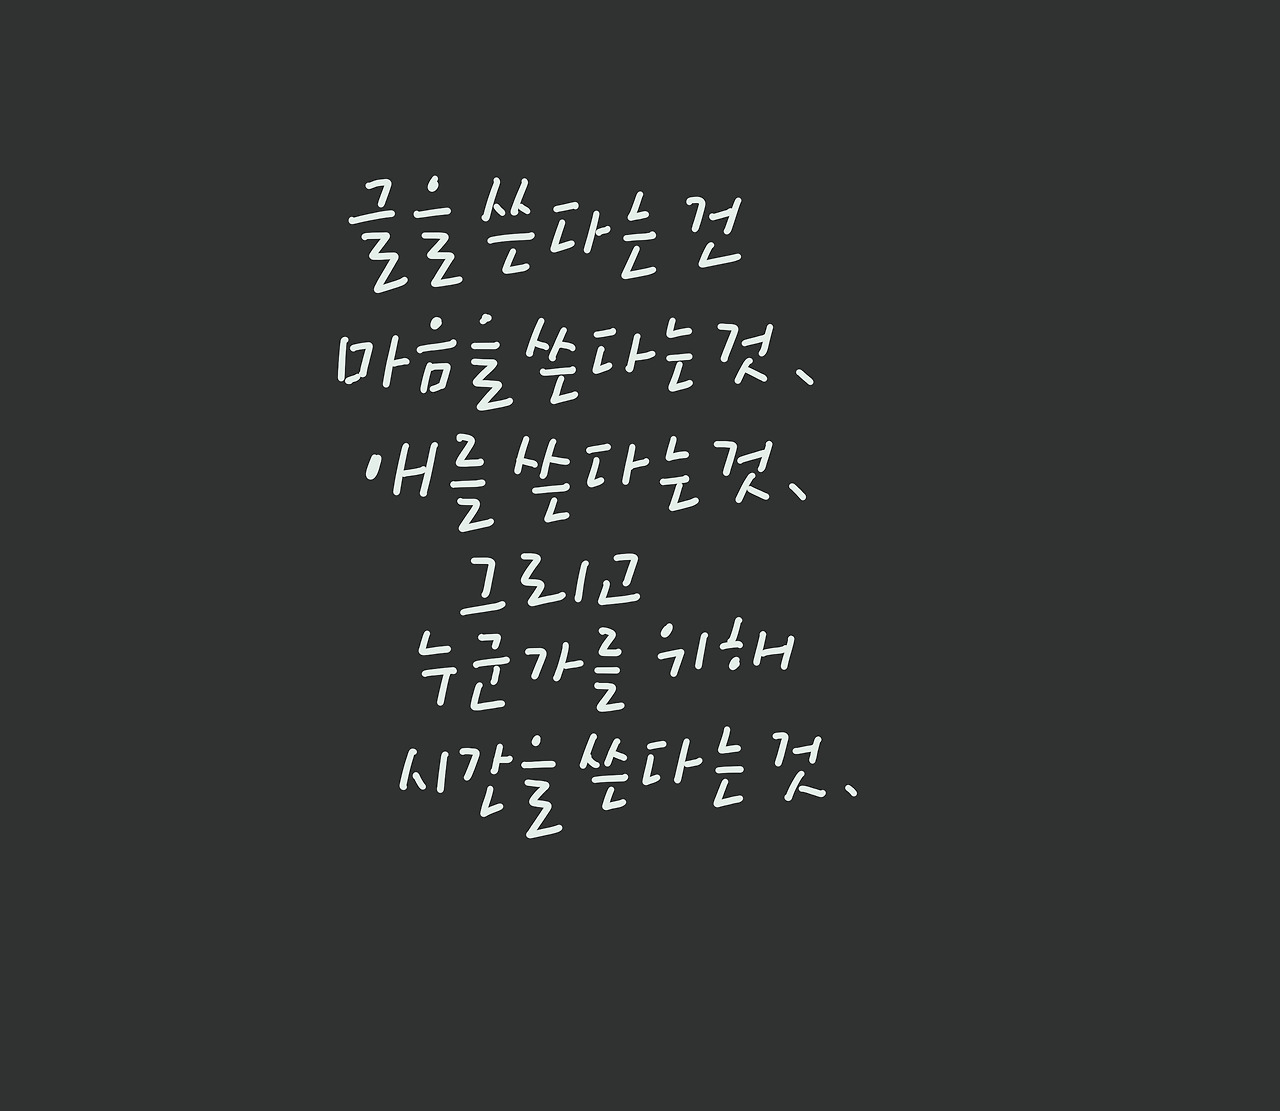 글을 쓴다는 건
마음을 쓴다는 것、
애를 쓴다는 것、
그리고
누군가를 위해
시간을 쓴다는 것、